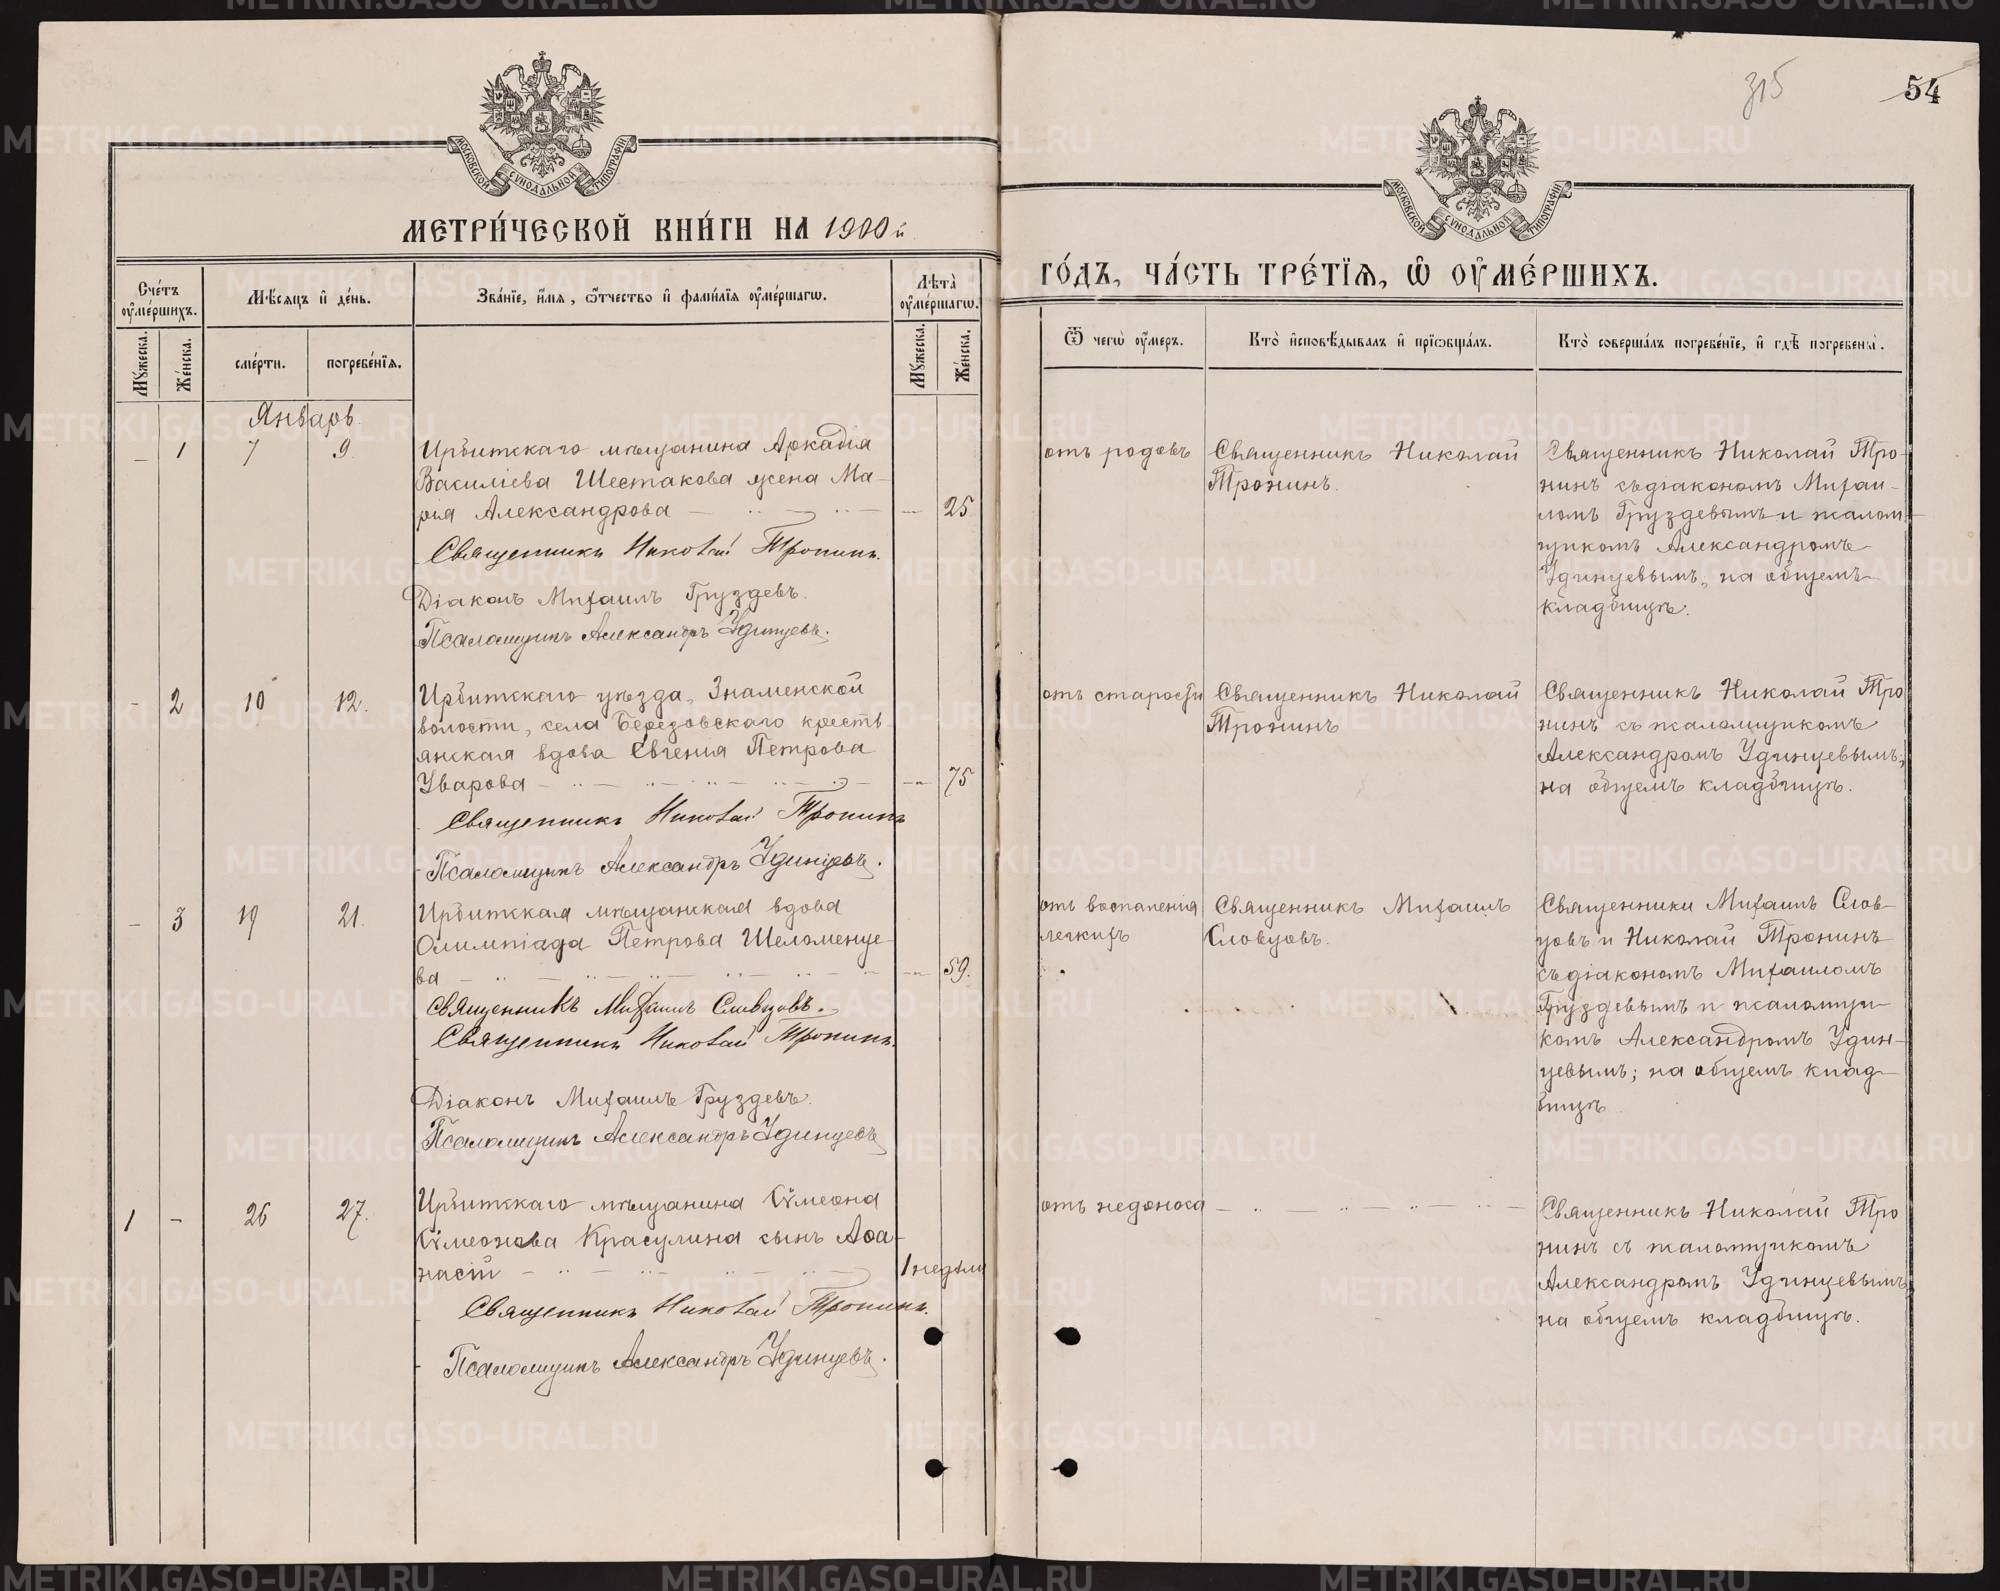 315
54
МОСКОВСКОЙ СѴНОДАЛЬНОЙ ТИПОГРАФІИ
МОСКОВСКОЙ СѴНОДАЛЬНОЙ ТИПОГРАФІИ
МЕТРИ́ЧЕСКОЙ КНИ́ГИ НА 1900й
ГО́ДЪ, ЧА́СТЬ ТРЕ́ТЇЯ, Ѡ҆ ОУ҆МЕ́РШИХЪ.
Сче́тъ оу҆ме́ршихъ.
Мѣ́сяцъ и҆ де́нь.
Зва́нїе, и҆́мя, ѻ҆́тчество и҆ фами́лїя оу҆ме́ршагѡ.
Лѣ́та оу҆ме́ршагѡ.
Мꙋ́жеска.
Же́нска.
сме́рти.
погребе́нїя.
Мꙋ́жеска.
Же́нска.
Ѿ чегѡ̀ оу҆́меръ.
Кто̀ и҆сповѣ́дывалъ и҆ прїѡбща́лъ.
Кто̀ соверша́лъ погребе́нїе, и҆ гдѣ̀ погребены̀.
Январь.
– 1 7 9.
Ирбитскаго мѣщанина Аркадія
Василіева Шестакова жена Ма-
рія Александрова – 25
Священникъ Николай Тронинъ.
Діаконъ Михаилъ Груздевъ.
Псаломщикъ Александръ Удинцевъ.
отъ родовъ
Священникъ Николай
Тронинъ.
Священникъ Николай Тро-
нинъ съ діакономъ Михаи-
ломъ Груздевымъ и псалом-
щикомъ Александромъ
Удинцевымъ, на общемъ
кладбищѣ.
– 2 10 12.
Ирбитскаго уѣзда, Знаменской
волости, села Березовскаго кресть-
янская вдова Евгенія Петрова
Уварова – 75
Священникъ Николай Тронинъ
Псаломщикъ Александръ Удинцевъ.
отъ старости
Священникъ Николай
Тронинъ
Священникъ Николай Тро
нинъ съ псаломщикомъ
Александромъ Удинцевымъ;
на общемъ кладбищѣ.
– 3 19 21.
Ирбитская мѣщанская вдова
Олимпіада Петрова Шеломенце-
ва – 59.
Священникъ Михаилъ Словцовъ.
Священникъ Николай Тронинъ.
Діаконъ Михаилъ Груздевъ.
Псаломщикъ Александръ Удинцевъ
отъ воспаленія
легкихъ
Священникъ Михаилъ
Словцовъ.
Священники Михаилъ Слов-
цовъ и Николай Тронинъ
съ діакономъ Михаиломъ
Груздевымъ и псаломщи-
комъ Александромъ Удин-
цевымъ; на общемъ клад-
бищѣ
1 – 26 27.
Ирбитскаго мѣщанина Сѵмеона
Сѵмеонова Красулина сынъ Аѳа-
насій – 1 недѣли
Священникъ Николай Тронинъ.
Псаломщикъ Александръ Удинцевъ.
отъ недоноса –
Священникъ Николай Тро
нинъ съ псаломщикомъ
Александромъ Удинцевымъ,
на общемъ кладбищѣ.
METRIKI.GASO-URAL.RU